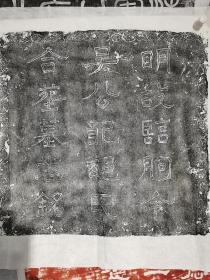 明故臨朐令
吳公配魏氏
合葬墓誌銘